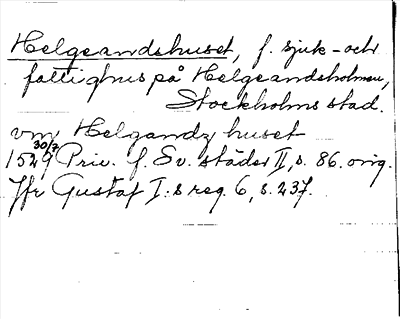 Helgeandshuset, f. sjuk- och
fattighus på Helgeandsholmen,
Stockholms stad.
vm Helgandz huset
1529 30/7 Priv. f. Sv. städer II, s. 86. orig.
Jfr Gustaf I:s reg. 6, s. 237.